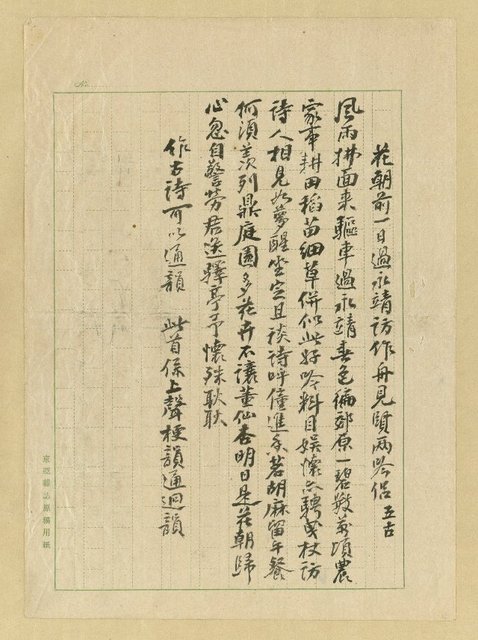 花朝前一日過永靖訪作舟見賢兩吟侶 五古
風雨拂面來驅車過永靖春色徧郊原一碧數萬頃農
家事耕田稻苗細草併似此好吟料目娛懷亦騁曳杖訪
詩人相見如夢醒坐定且談詩呼僮進香茗胡麻留午餐
何須羨列鼎庭園多花卉不讓董仙杏明日是花朝歸
心忽自警勞君送驛亭予懷殊耿耿
作古詩可以通韻 此首係上聲梗韻通迥韻
No.
東亞雜誌原稿用紙